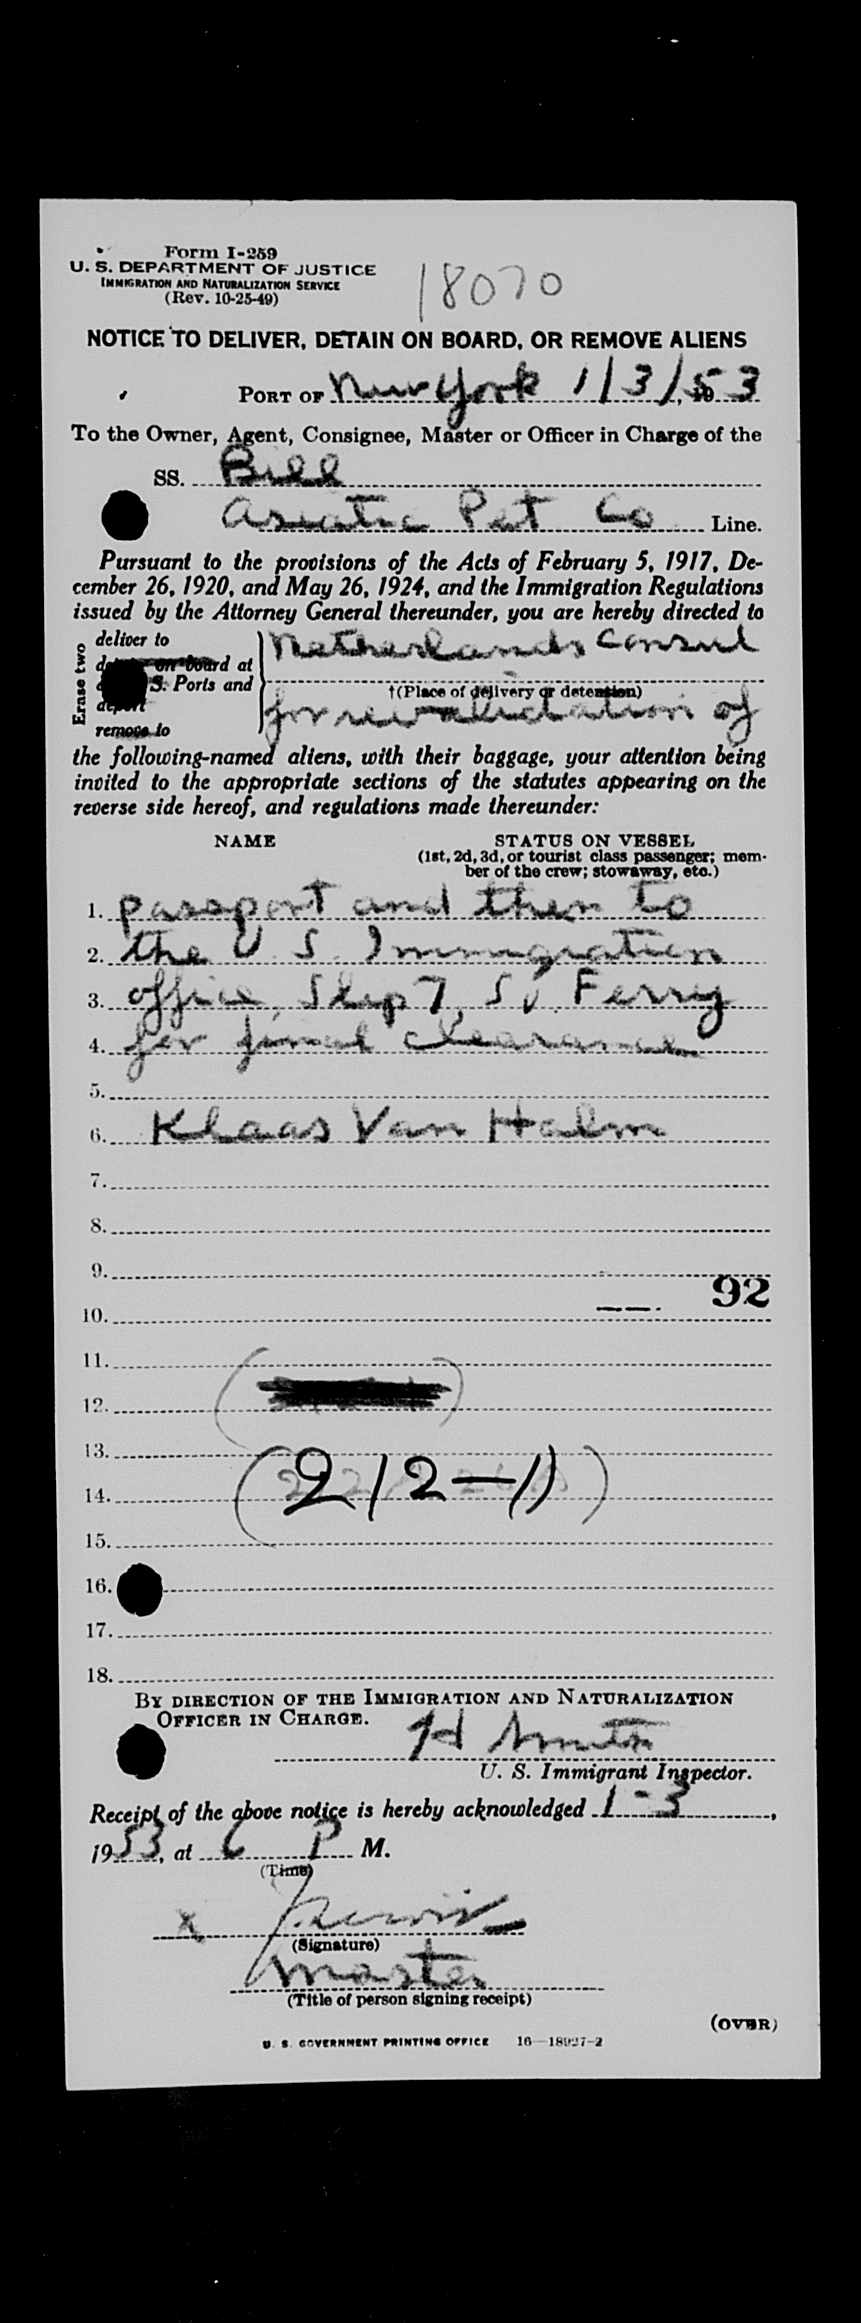 Form I-259
U. S. DEPARTMENT OF JUSTICE
IMMIGRATION AND NATURALIZATION SERVICE
(Rev. 10-25-49)
18070
NOTICE TO DELIVER, DETAIN ON BOARD, OR REMOVE ALIENS
PORT OF New York 1/3/, 19 53
To the Owner, Agent, Consignee, Master or Officer in Charge of the
SS. Bill
Asiatic Pet Co Line.
Pursuant to the provisions of the Acts of February 5, 1917, De-
cember 26, 1920, and May 26, 1924, and the Immigration Regulations
issued by the Attorney General thereunder, you are hereby directed to
Erase two
deliver to
on board at
S. Ports and
deport
remove to
Netherlands Consul
†(Place of delivery or detention)
for revalidation of
the following-named aliens, with their baggage, your attention being
invited to the appropriate sections of the statutes appearing on the
reverse side hereof, and regulations made thereunder:
NAME STATUS ON VESSEL
(1st, 2d, 3d, or tourist class passenger; mem-
ber of the crew; stowaway, etc.)
1. passport and then to
2. the U. S. Immigration
3. office, Slip 7, So. Ferry
4. for final clearance
5.
6. Klaas Van Halm
7.
8.
9.
92
10.
11.
12.
13.
(212-11)
14.
15.
16.
17.
18.
BY DIRECTION OF THE IMMIGRATION AND NATURALIZATION
OFFICER IN CHARGE.
H
U. S. Immigrant Inspector.
Receipt of the above notice is hereby acknowledged 1-3,
1953, at 6 P M.
(Time)
x
(Signature)
Master
(Title of person signing receipt)
(OVER)
U. S. GOVERNMENT PRINTING OFFICE 16—18927-2